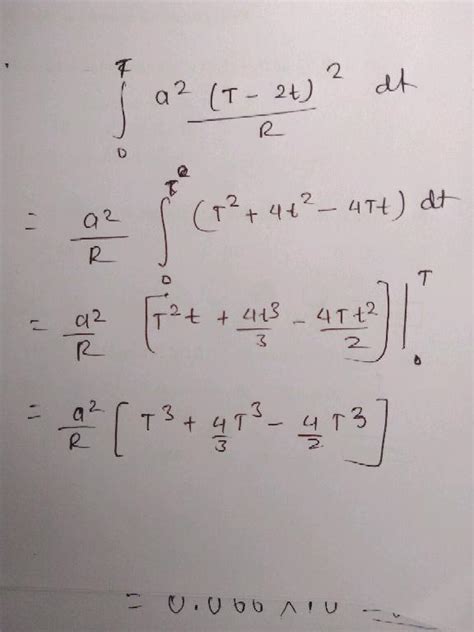 ∫₀ᵀ a² (T - 2t)² / R dt
= a²/R ∫₀ᵀ (T² + 4t² - 4Tt) dt
= a²/R [T²t + 4t³/3 - 4Tt²/2] |₀ᵀ
= a²/R [T³ + 4/3 T³ - 4/2 T³]